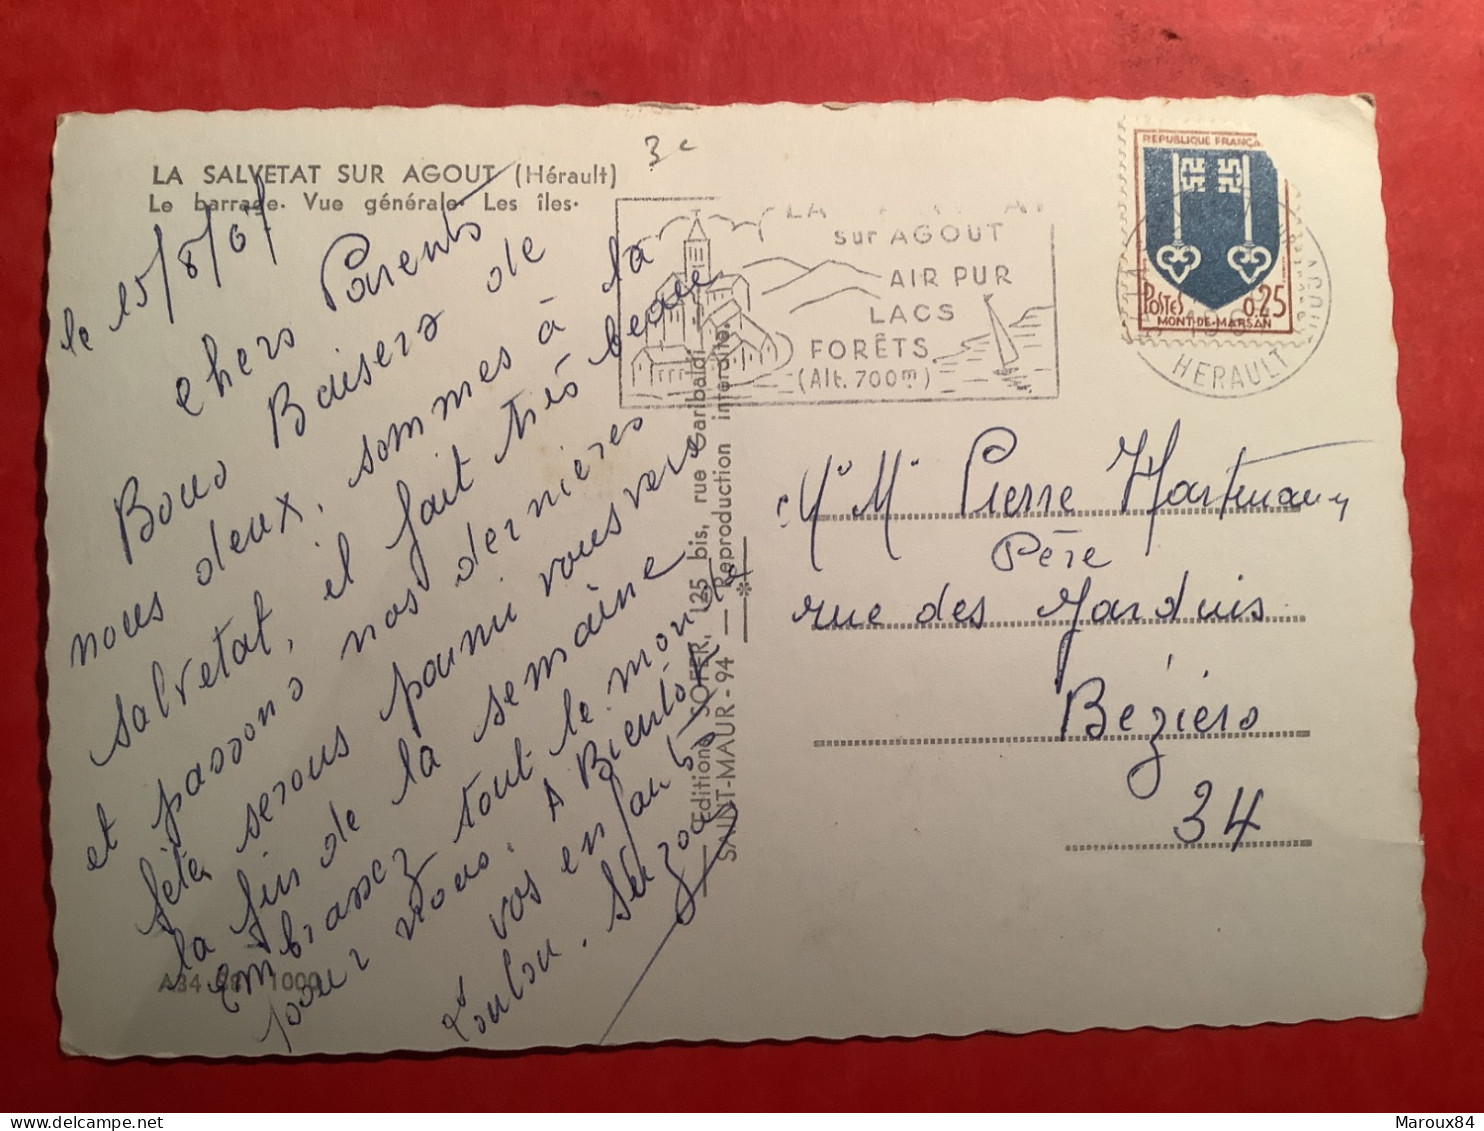 LA SALVETAT SUR AGOUT (Hérault)
Le barrage. Vue générale. Les îles.
3 c
le 15/8/67
chers Parents
Bons Baisers de
nous deux, sommes à la
salvetat, il fait très beau
et passons nos dernières
fêtes serons parmi vous vers
la fin de la semaine
Embrassez tout le monde
pour nous. A Bientôt
vos enfants
Loulou. Suzon
A34 1000
Editions SOFER, 125 bis, rue Garibaldi
SAINT-MAUR - 94 — Reproduction interdite.
LA
sur AGOUT
AIR PUR
LACS
FORÊTS
(Alt. 700m)
REPUBLIQUE FRANÇA
POSTES 0,25
MONT-DE-MARSAN
HERAULT
Mr Me Pierre
Père
rue des Jardins
Béziers
34
Maroux84